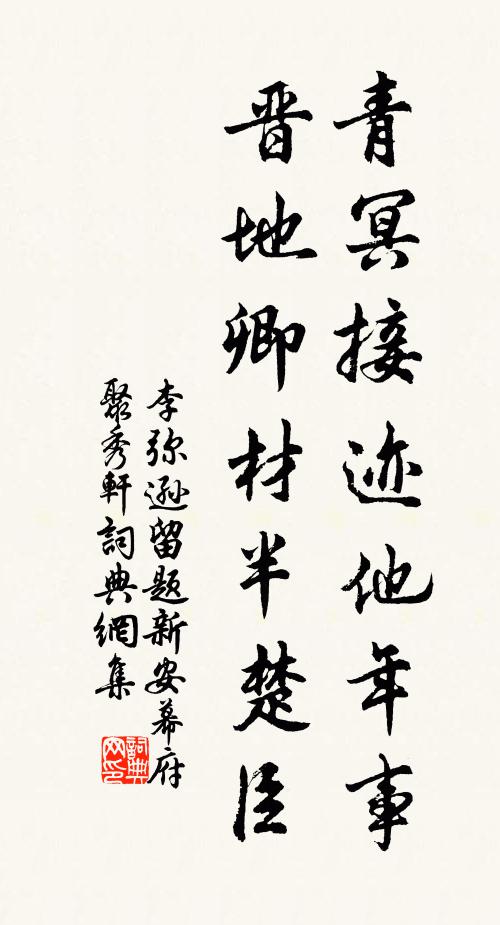 青冥接迹他年事
晋地卿材半楚臣
李弥遜留題新安幕府
聚秀軒詞典網集
詞典网印